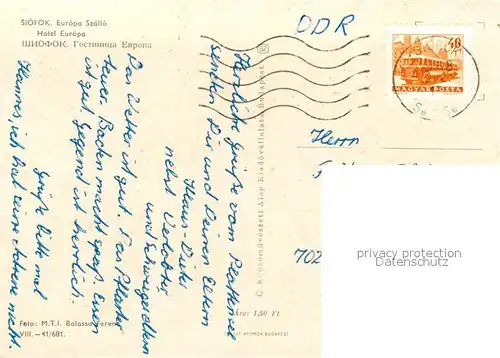 SIÓFOK. Európa Szálló
Hotel Európa
ШИОФОК. Гостиница Европа
DDR
40
MAGYAR POSTA
Herrn
702
privacy protection
Herzliche Grüße vom Plattensee
senden Dir und Deinen Eltern
Klaus-Dieter
nebst Verlobter
und Schwiegereltern
Das Wetter ist gut. Das Pflaster
teuer. Baden macht Spaß. Essen
ist gut. Gegend ist herrlich.
Grüße bitte mal
Hannes, ich hab seine Adresse nicht.
Képzőművészeti Alap Kiadóvállalata Budapest
Ára: 1,50 Ft
NYOMDA, BUDAPEST
Foto: M.T.I. Balassa Ferenc
VIII.—41/681.